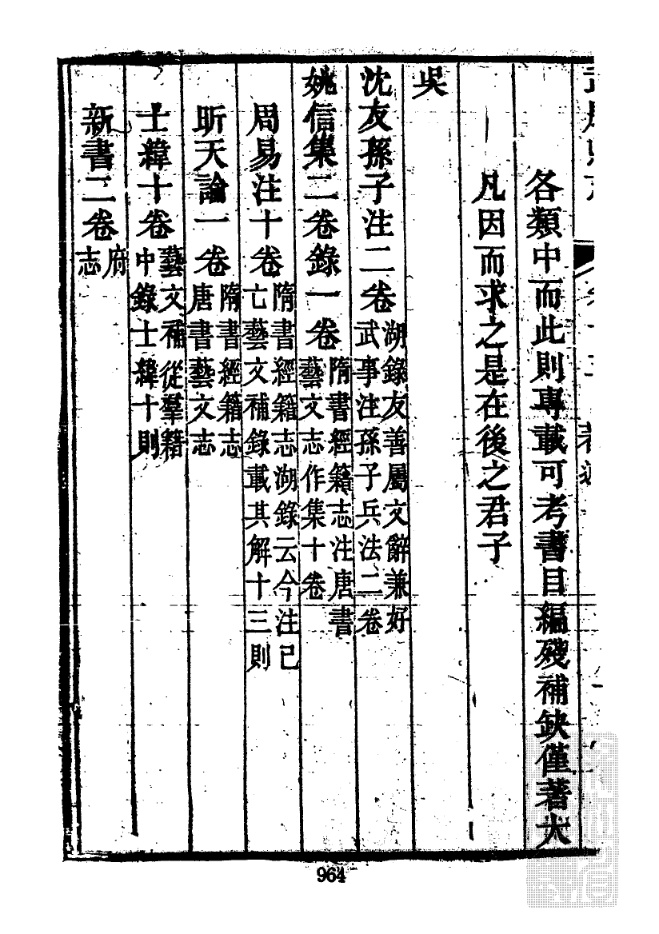 各類中而此則專載可考書目編殘補缺僅著大
凡因而求之是在後之君子
吳
沈友孫子注二卷湖錄友善屬文辭兼好
武事注孫子兵法二卷
姚信集二卷錄一卷隋書經籍志注唐書
藝文志作集十卷
周易注十卷隋書經籍志湖錄云今注已
亡藝文補錄載其解十三則
昕天論一卷隋書經籍志
唐書藝文志
士緯十卷藝文補從羣籍
中錄士緯十則
新書二卷府
志
964